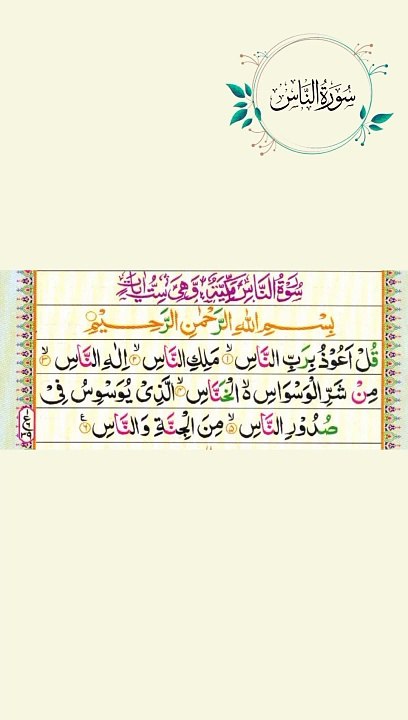 سُوْرَةُ النَّاسِ
سُوْرَةُ النَّاسِ مَكِّيَّةٌ وَّهِيَ سِتُّ اٰيَاتٍ
بِسْمِ اللهِ الرَّحْمٰنِ الرَّحِيْمِ
قُلْ اَعُوْذُ بِرَبِّ النَّاسِ ۙ﴿۱﴾ مَلِكِ النَّاسِ ۙ﴿۲﴾ اِلٰهِ النَّاسِ ۙ﴿۳﴾
مِنْ شَرِّ الْوَسْوَاسِ ۙ۬ الْخَنَّاسِ ۙ﴿۴﴾ الَّذِىْ يُوَسْوِسُ فِىْ
صُدُوْرِ النَّاسِ ۙ﴿۵﴾ مِنَ الْجِنَّةِ وَ النَّاسِ ﴿۶﴾